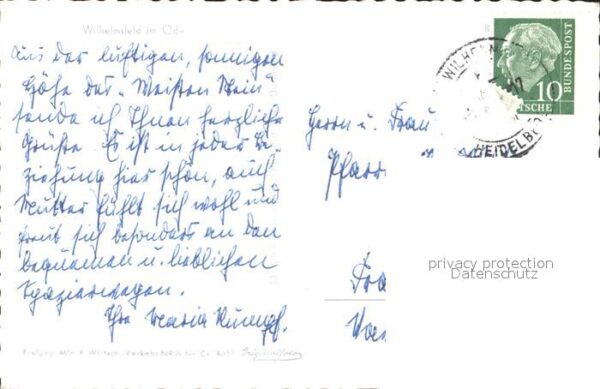 Wilhelmsfeld im Od
Aus der luftigen, sonnigen
Höhe des "Weißen Stein"
sende ich Ihnen herzliche
Grüße. Es ist in jeder Be-
ziehung hier schön, auch
Mutter fühlt sich wohl und
freut sich besonders an den
bequemen u. lieblichen
Spazierwegen.
Ihre Maria
Herrn u. Frau
Pfarr
Fra
10
DEUTSCHE BUNDESPOST
HEIDELB
privacy protection
Datenschutz